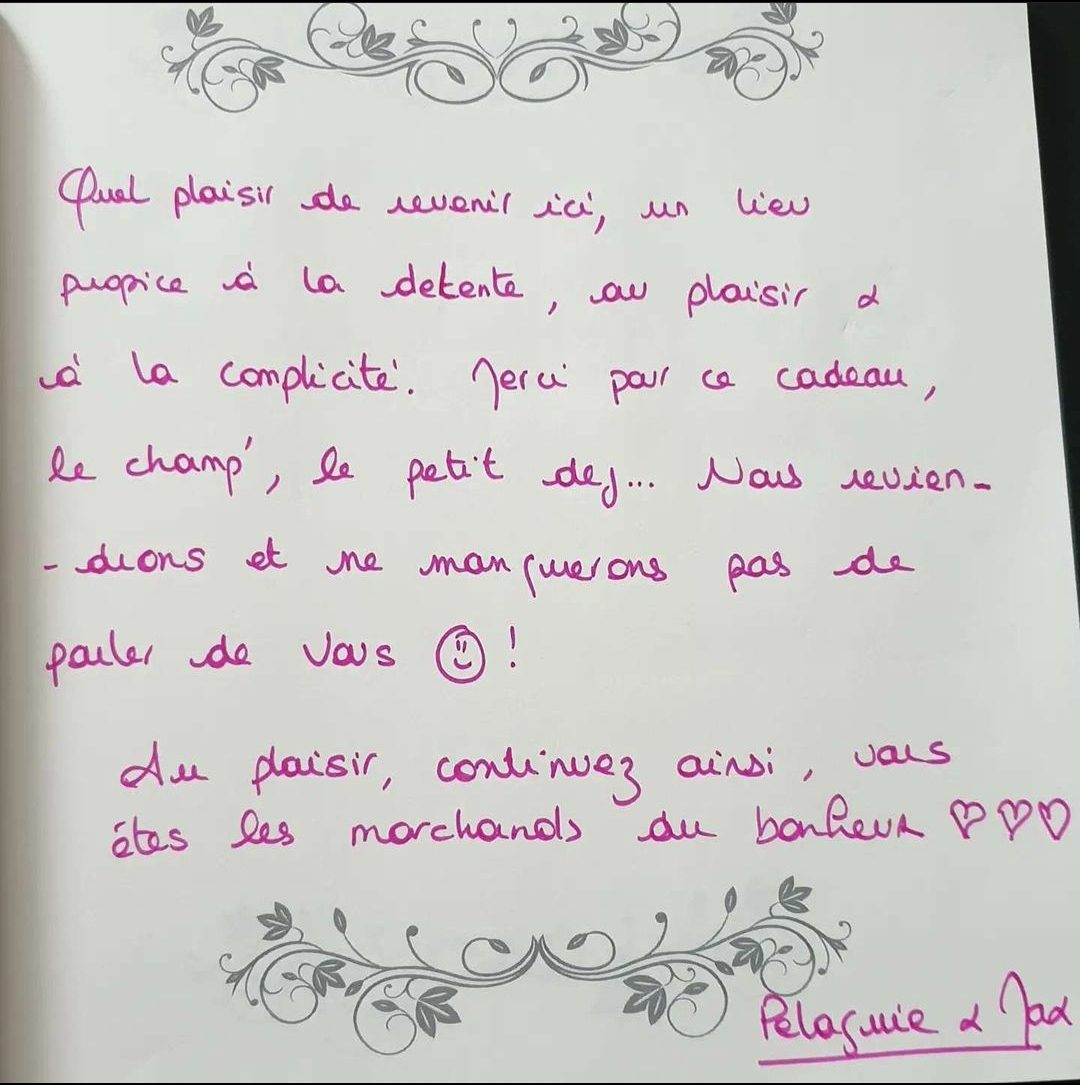 Quel plaisir de revenir ici, un lieu
propice à la detente, au plaisir &
à la complicité. Merci pour ce cadeau,
le champ', le petit dej... Nous revien-
-drons et ne manquerons pas de
parler de vous ☺ !
Au plaisir, continuez ainsi, vous
êtes les marchands du bonheur ♡♡♡
&